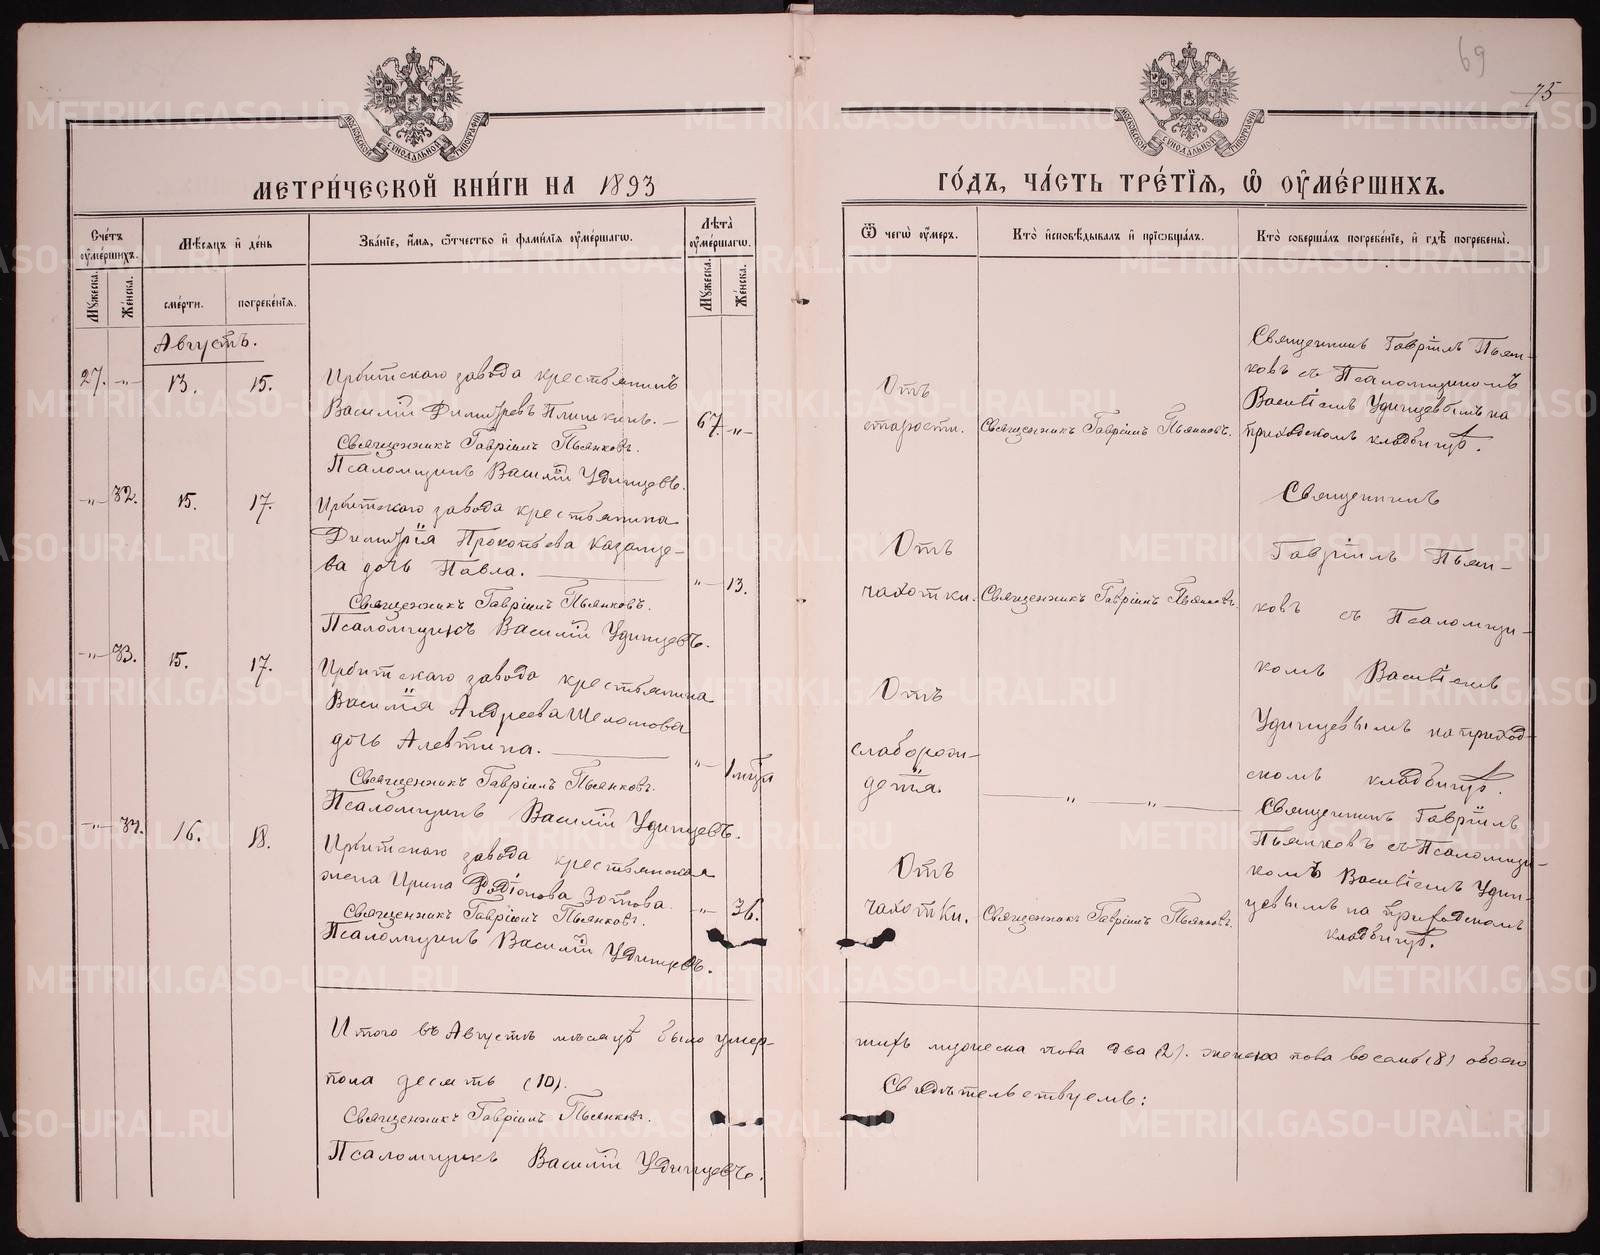 69
75
МОСКОВСКОЙ СУНОДАЛЬНОЙ ТИПОГРАФИИ
МОСКОВСКОЙ СУНОДАЛЬНОЙ ТИПОГРАФИИ
МЕТРИ́ЧЕСКОЙ КНИ́ГИ НА 1893
ГО́ДЪ, ЧА́СТЬ ТРЕ́ТІѦ, Ѡ҆ ОУ҆МЕ́РШИХЪ.
Сче́тъ оу҆ме́ршихъ.
Мѣ́сяцъ и҆ де́нь
Зва́ніе, и҆́мя, ѻ҆́тчество и҆ фами́лія оу҆ме́ршагѡ.
Лѣ́та оу҆ме́ршагѡ.
Ѿ чегѡ̀ оу҆́меръ.
Кто̀ и҆сповѣ́дывалъ и҆ прїѡбща́лъ.
Кто̀ соверша́лъ погребе́ніе, и҆ гдѣ̀ погребены̀.
Мꙋ́жеска.
Же́нска.
сме́рти.
погребе́нія.
Мꙋ́жеска.
Же́нска.
Августъ.
27. -„-
13.
15.
Ирбитскаго завода крестьянинъ
Василій Димитріевъ Плишкинъ. —
67. -„-
Священникъ Гавріилъ Пьянковъ.
Псаломщикъ Василій Удинцевъ.
Отъ
старости.
Священникъ Гавріилъ Пьянковъ.
Священникъ Гавріилъ Пьян-
ковъ съ Псаломщикомъ
Василіемъ Удинцевымъ на
приходскомъ кладбищѣ.
-„- 32.
15.
17.
Ирбитскаго завода крестьянина
Димитрія Прокопьева Казанце-
ва дочь Павла. —
„ — 13.
Священникъ Гавріилъ Пьянковъ.
Псаломщикъ Василій Удинцевъ.
Отъ
чахотки.
Священникъ Гавріилъ Пьянковъ.
Священникъ
Гавріилъ Пьян-
ковъ съ Псаломщи-
комъ Василіемъ
Удинцевымъ на приход-
скомъ кладбищѣ.
-„- 33.
15.
17.
Ирбитскаго завода крестьянина
Василія Андреева Шеломова
дочь Алевтина. —
„ —
Священникъ Гавріилъ Пьянковъ.
Псаломщикъ Василій Удинцевъ.
Отъ
слаборож-
детія.
— „ — „ —
-„- 34.
16.
18.
Ирбитскаго завода крестьянская
жена Ирина Родіонова Зотова.
-„- 36.
Священникъ Гавріилъ Пьянковъ.
Псаломщикъ Василій Удинцевъ.
Отъ
чахотки.
Священникъ Гавріилъ Пьянковъ.
Священникъ Гавріилъ
Пьянковъ съ Псаломщи-
комъ Василіемъ Удин-
цевымъ на приходскомъ
кладбищѣ.
Итого въ Августѣ мѣсяцѣ было умер-
шихъ мужеска пола два (2). женска пола восемь (8) обоего
пола десять (10).
Свидѣтельствуемъ:
Священникъ Гавріилъ Пьянковъ.
Псаломщикъ Василій Удинцевъ.
METRIKI.GASO-URAL.RU